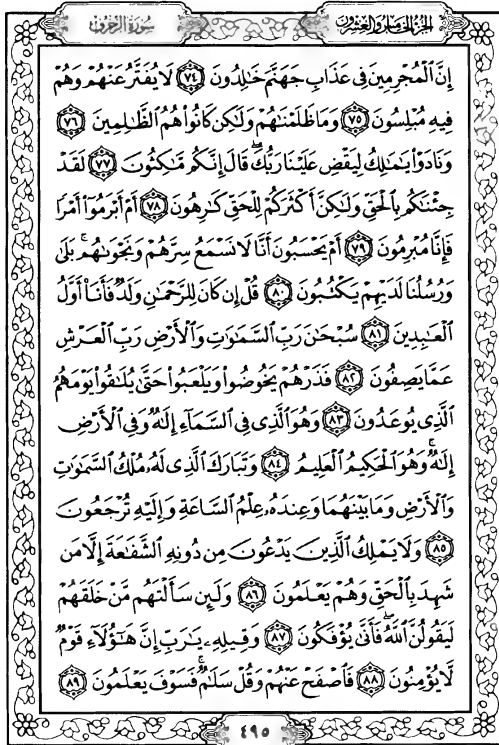 سورة الزخرف
الجزء الخامس والعشرون
إِنَّ ٱلْمُجْرِمِينَ فِى عَذَابِ جَهَنَّمَ خَٰلِدُونَ ﴿٧٤﴾ لَا يُفَتَّرُ عَنْهُمْ وَهُمْ
فِيهِ مُبْلِسُونَ ﴿٧٥﴾ وَمَا ظَلَمْنَٰهُمْ وَلَٰكِن كَانُوا۟ هُمُ ٱلظَّٰلِمِينَ ﴿٧٦﴾
وَنَادَوْا۟ يَٰمَٰلِكُ لِيَقْضِ عَلَيْنَا رَبُّكَ ۖ قَالَ إِنَّكُم مَّٰكِثُونَ ﴿٧٧﴾ لَقَدْ
جِئْنَٰكُم بِٱلْحَقِّ وَلَٰكِنَّ أَكْثَرَكُمْ لِلْحَقِّ كَٰرِهُونَ ﴿٧٨﴾ أَمْ أَبْرَمُوٓا۟ أَمْرًا
فَإِنَّا مُبْرِمُونَ ﴿٧٩﴾ أَمْ يَحْسَبُونَ أَنَّا لَا نَسْمَعُ سِرَّهُمْ وَنَجْوَىٰهُم ۚ بَلَىٰ
وَرُسُلُنَا لَدَيْهِمْ يَكْتُبُونَ ﴿٨٠﴾ قُلْ إِن كَانَ لِلرَّحْمَٰنِ وَلَدٌ فَأَنَا۠ أَوَّلُ
ٱلْعَٰبِدِينَ ﴿٨١﴾ سُبْحَٰنَ رَبِّ ٱلسَّمَٰوَٰتِ وَٱلْأَرْضِ رَبِّ ٱلْعَرْشِ
عَمَّا يَصِفُونَ ﴿٨٢﴾ فَذَرْهُمْ يَخُوضُوا۟ وَيَلْعَبُوا۟ حَتَّىٰ يُلَٰقُوا۟ يَوْمَهُمُ
ٱلَّذِى يُوعَدُونَ ﴿٨٣﴾ وَهُوَ ٱلَّذِى فِى ٱلسَّمَآءِ إِلَٰهٌ وَفِى ٱلْأَرْضِ
إِلَٰهٌ ۚ وَهُوَ ٱلْحَكِيمُ ٱلْعَلِيمُ ﴿٨٤﴾ وَتَبَارَكَ ٱلَّذِى لَهُۥ مُلْكُ ٱلسَّمَٰوَٰتِ
وَٱلْأَرْضِ وَمَا بَيْنَهُمَا وَعِندَهُۥ عِلْمُ ٱلسَّاعَةِ وَإِلَيْهِ تُرْجَعُونَ
﴿٨٥﴾ وَلَا يَمْلِكُ ٱلَّذِينَ يَدْعُونَ مِن دُونِهِ ٱلشَّفَٰعَةَ إِلَّا مَن
شَهِدَ بِٱلْحَقِّ وَهُمْ يَعْلَمُونَ ﴿٨٦﴾ وَلَئِن سَأَلْتَهُم مَّنْ خَلَقَهُمْ
لَيَقُولُنَّ ٱللَّهُ ۖ فَأَنَّىٰ يُؤْفَكُونَ ﴿٨٧﴾ وَقِيلِهِۦ يَٰرَبِّ إِنَّ هَٰٓؤُلَآءِ قَوْمٌ
لَّا يُؤْمِنُونَ ﴿٨٨﴾ فَٱصْفَحْ عَنْهُمْ وَقُلْ سَلَٰمٌ ۚ فَسَوْفَ يَعْلَمُونَ ﴿٨٩﴾
٤٩٥